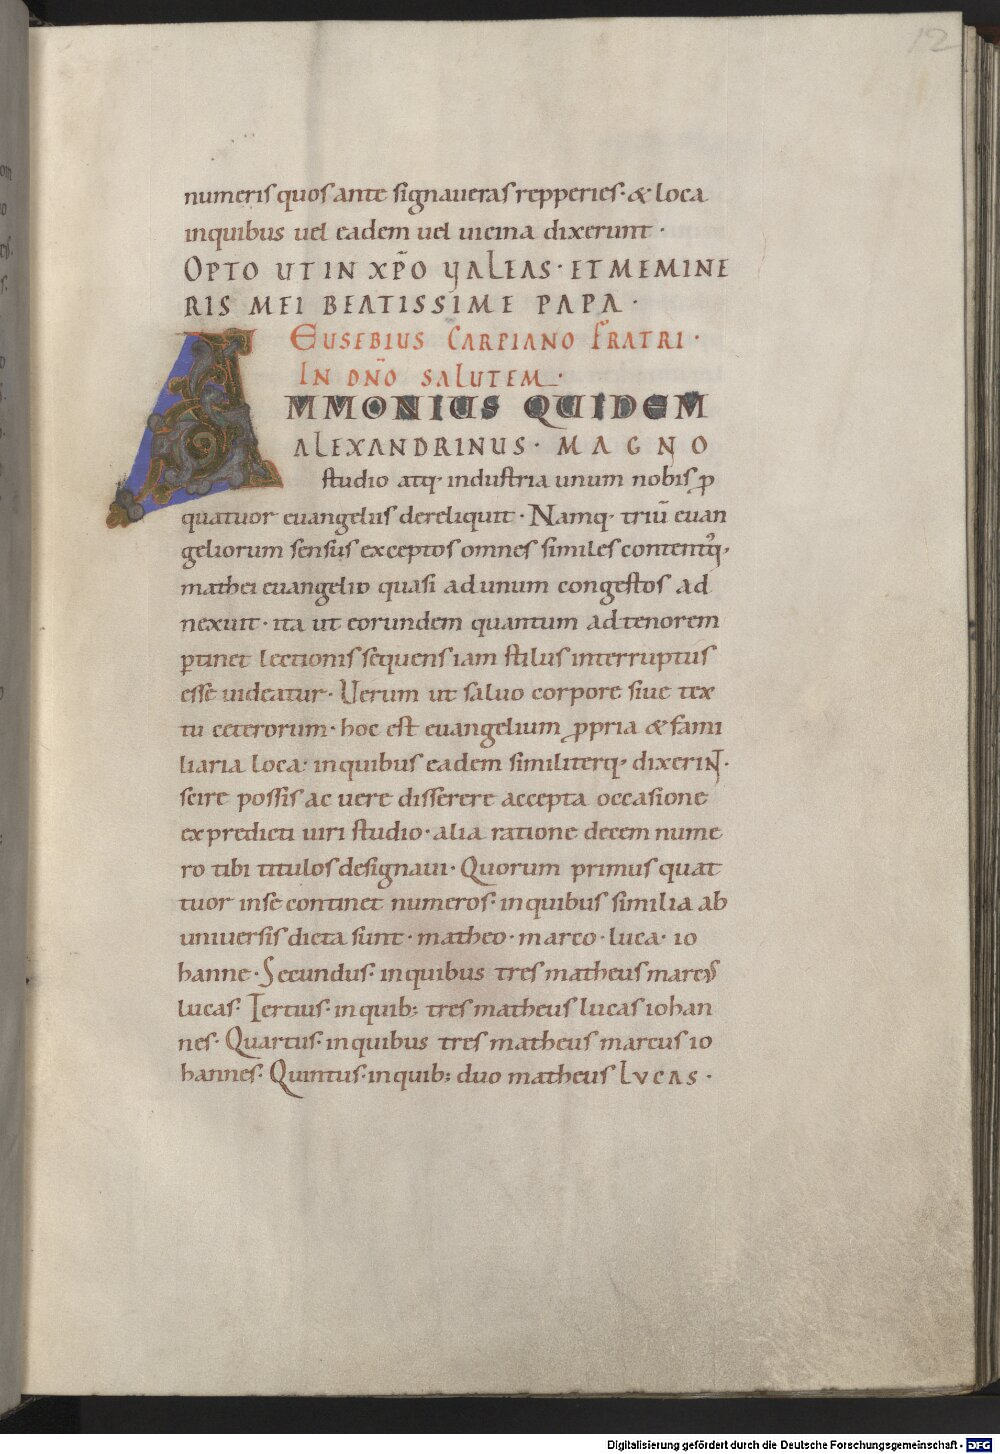 12
numeris quos ante signaueras repperies · & loca
inquibus uel eadem uel uicina dixerunt ·
OPTO UT IN XP̄O VALEAS · ET MEMINE
RIS MEI BEATISSIME PAPA ·
EUSEBIUS CARPIANO FRATRI ·
IN DN̄O SALUTEM ·
AMMONIUS QUIDEM
ALEXANDRINUS · MAGNO
studio atq· industria unum nobis ꝓ
quatuor euangeliis dereliquit · Namq· triū euan
geliorum sensus exceptos omnes similes contentq·
mathei euangelio quasi ad unum congestos ad
nexuit · ita ut eorundem quantum ad tenorem
ꝑtinet lectionis sequens iam stilus interruptus
esse uideatur · Uerum ut saluo corpore siue tex
tu ceterorum · hoc est euangelium ꝓpria & fami
liaria loca · inquibus eadem similiterq· dixerinт ·
scire possis ac uere disserere accepta occasione
ex predicti uiri studio · alia ratione decem nume
ro tibi titulos designaui · Quorum primus quat
tuor inse continet numeros · inquibus similia ab
uniuersis dicta sunt · matheo · marco · luca · io
hanne · Secundus · inquibus tres matheus marcus
lucas · Tertius · inquib; tres matheus lucas iohan
nes · Quartus · inquibus tres matheus marcus io
hannes · Quintus · inquib; duo matheus LVCAS ·
Digitalisierung gefördert durch die Deutsche Forschungsgemeinschaft - DFG